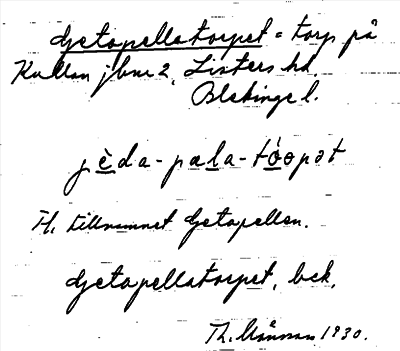 Getapellatorpet = torp på
Kullan jbnr 2, Listers hd.
Blekinge l.
jèda-pæla-tóopət
Ff. tillnamnet Getapellen.
Getapellatorpet, bek.
Th. Månsson 1930.